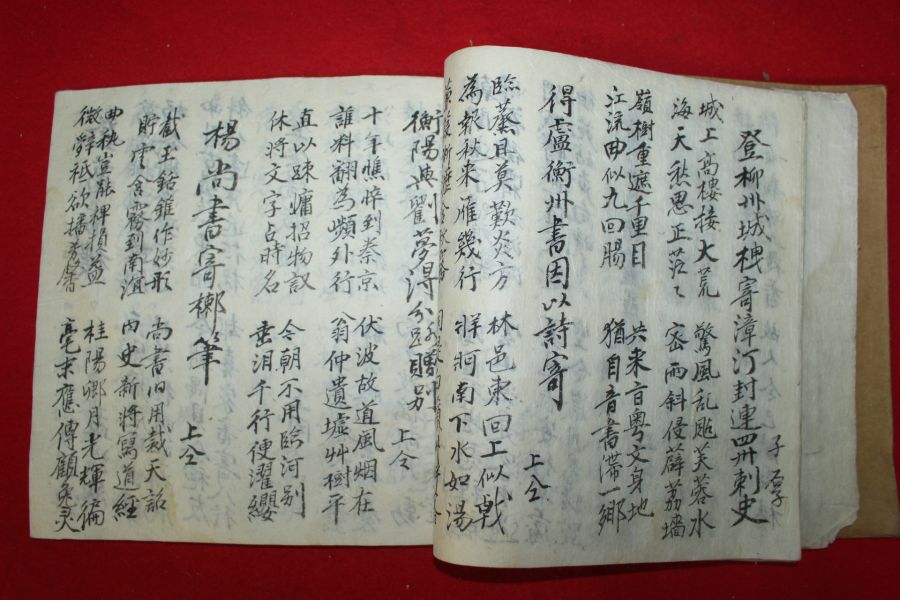 登柳州城楼寄漳汀封連四州刺史
子厚
城上高樓接大荒 驚風乱颭芙蓉水
海天愁思正茫々 密雨斜侵薜荔墻
嶺樹重遮千里目 共来百粤文身地
江流曲似九回腸 猶自音書滯一鄉
得盧衡州書因以詩寄 上仝
臨蒸且莫歎炎方 林邑東回上似戟
為報秋来雁幾行 牂牁南下水如湯
衡陽與劉夢得分路贈別 上仝
十年憔悴到秦京 伏波故道風烟在
誰料翻為嶺外行 翁仲遺墟艸樹平
直以踈慵招物議 今朝不用臨河别
休將文字占時名 垂泪千行便濯纓
楊尚書寄郴筆 上仝
截玉銛錐作妙形 尚書旧用裁天詔
貯雲含霧到南溟 內史新將寫道經
曲執豈能裨損益 桂陽卿月光輝徧
微辭祗欲播芳馨 毫末應傳顧兔灵